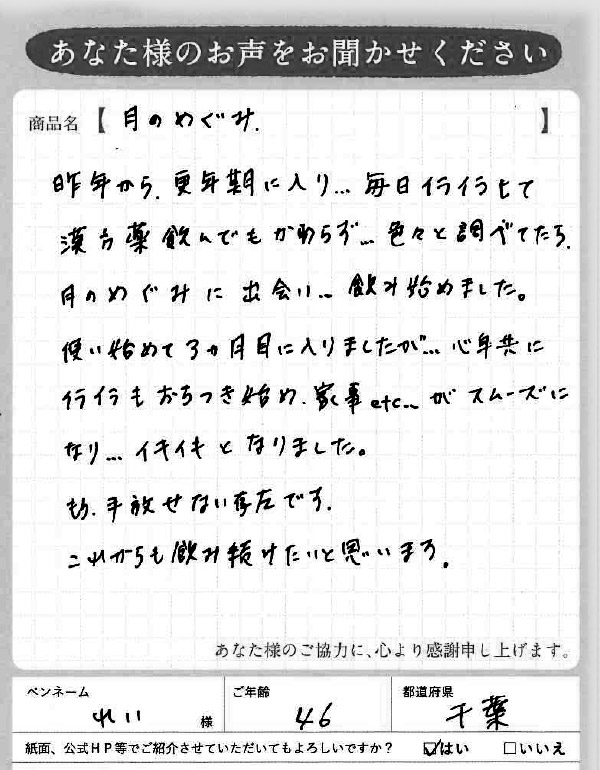 あなた様のお声をお聞かせください
商品名【 月のめぐみ. 】
昨年から、更年期に入り… 毎日イライラして
漢方薬飲んでもかわらず… 色々と調べてたら、
月のめぐみに出会い… 飲み始めました。
使い始めて3ヵ月目に入りましたが… 心身共に
イライラもおちつき始め、家事etc… がスムーズに
なり… イキイキとなりました。
もう、手放せない存在です。
これからも飲み続けたいと思います。
あなた様のご協力に、心より感謝申し上げます。
ペンネーム れい 様 ご年齢 46 都道府県 千葉
紙面、公式HP等でご紹介させていただいてもよろしいですか? ☑はい □いいえ